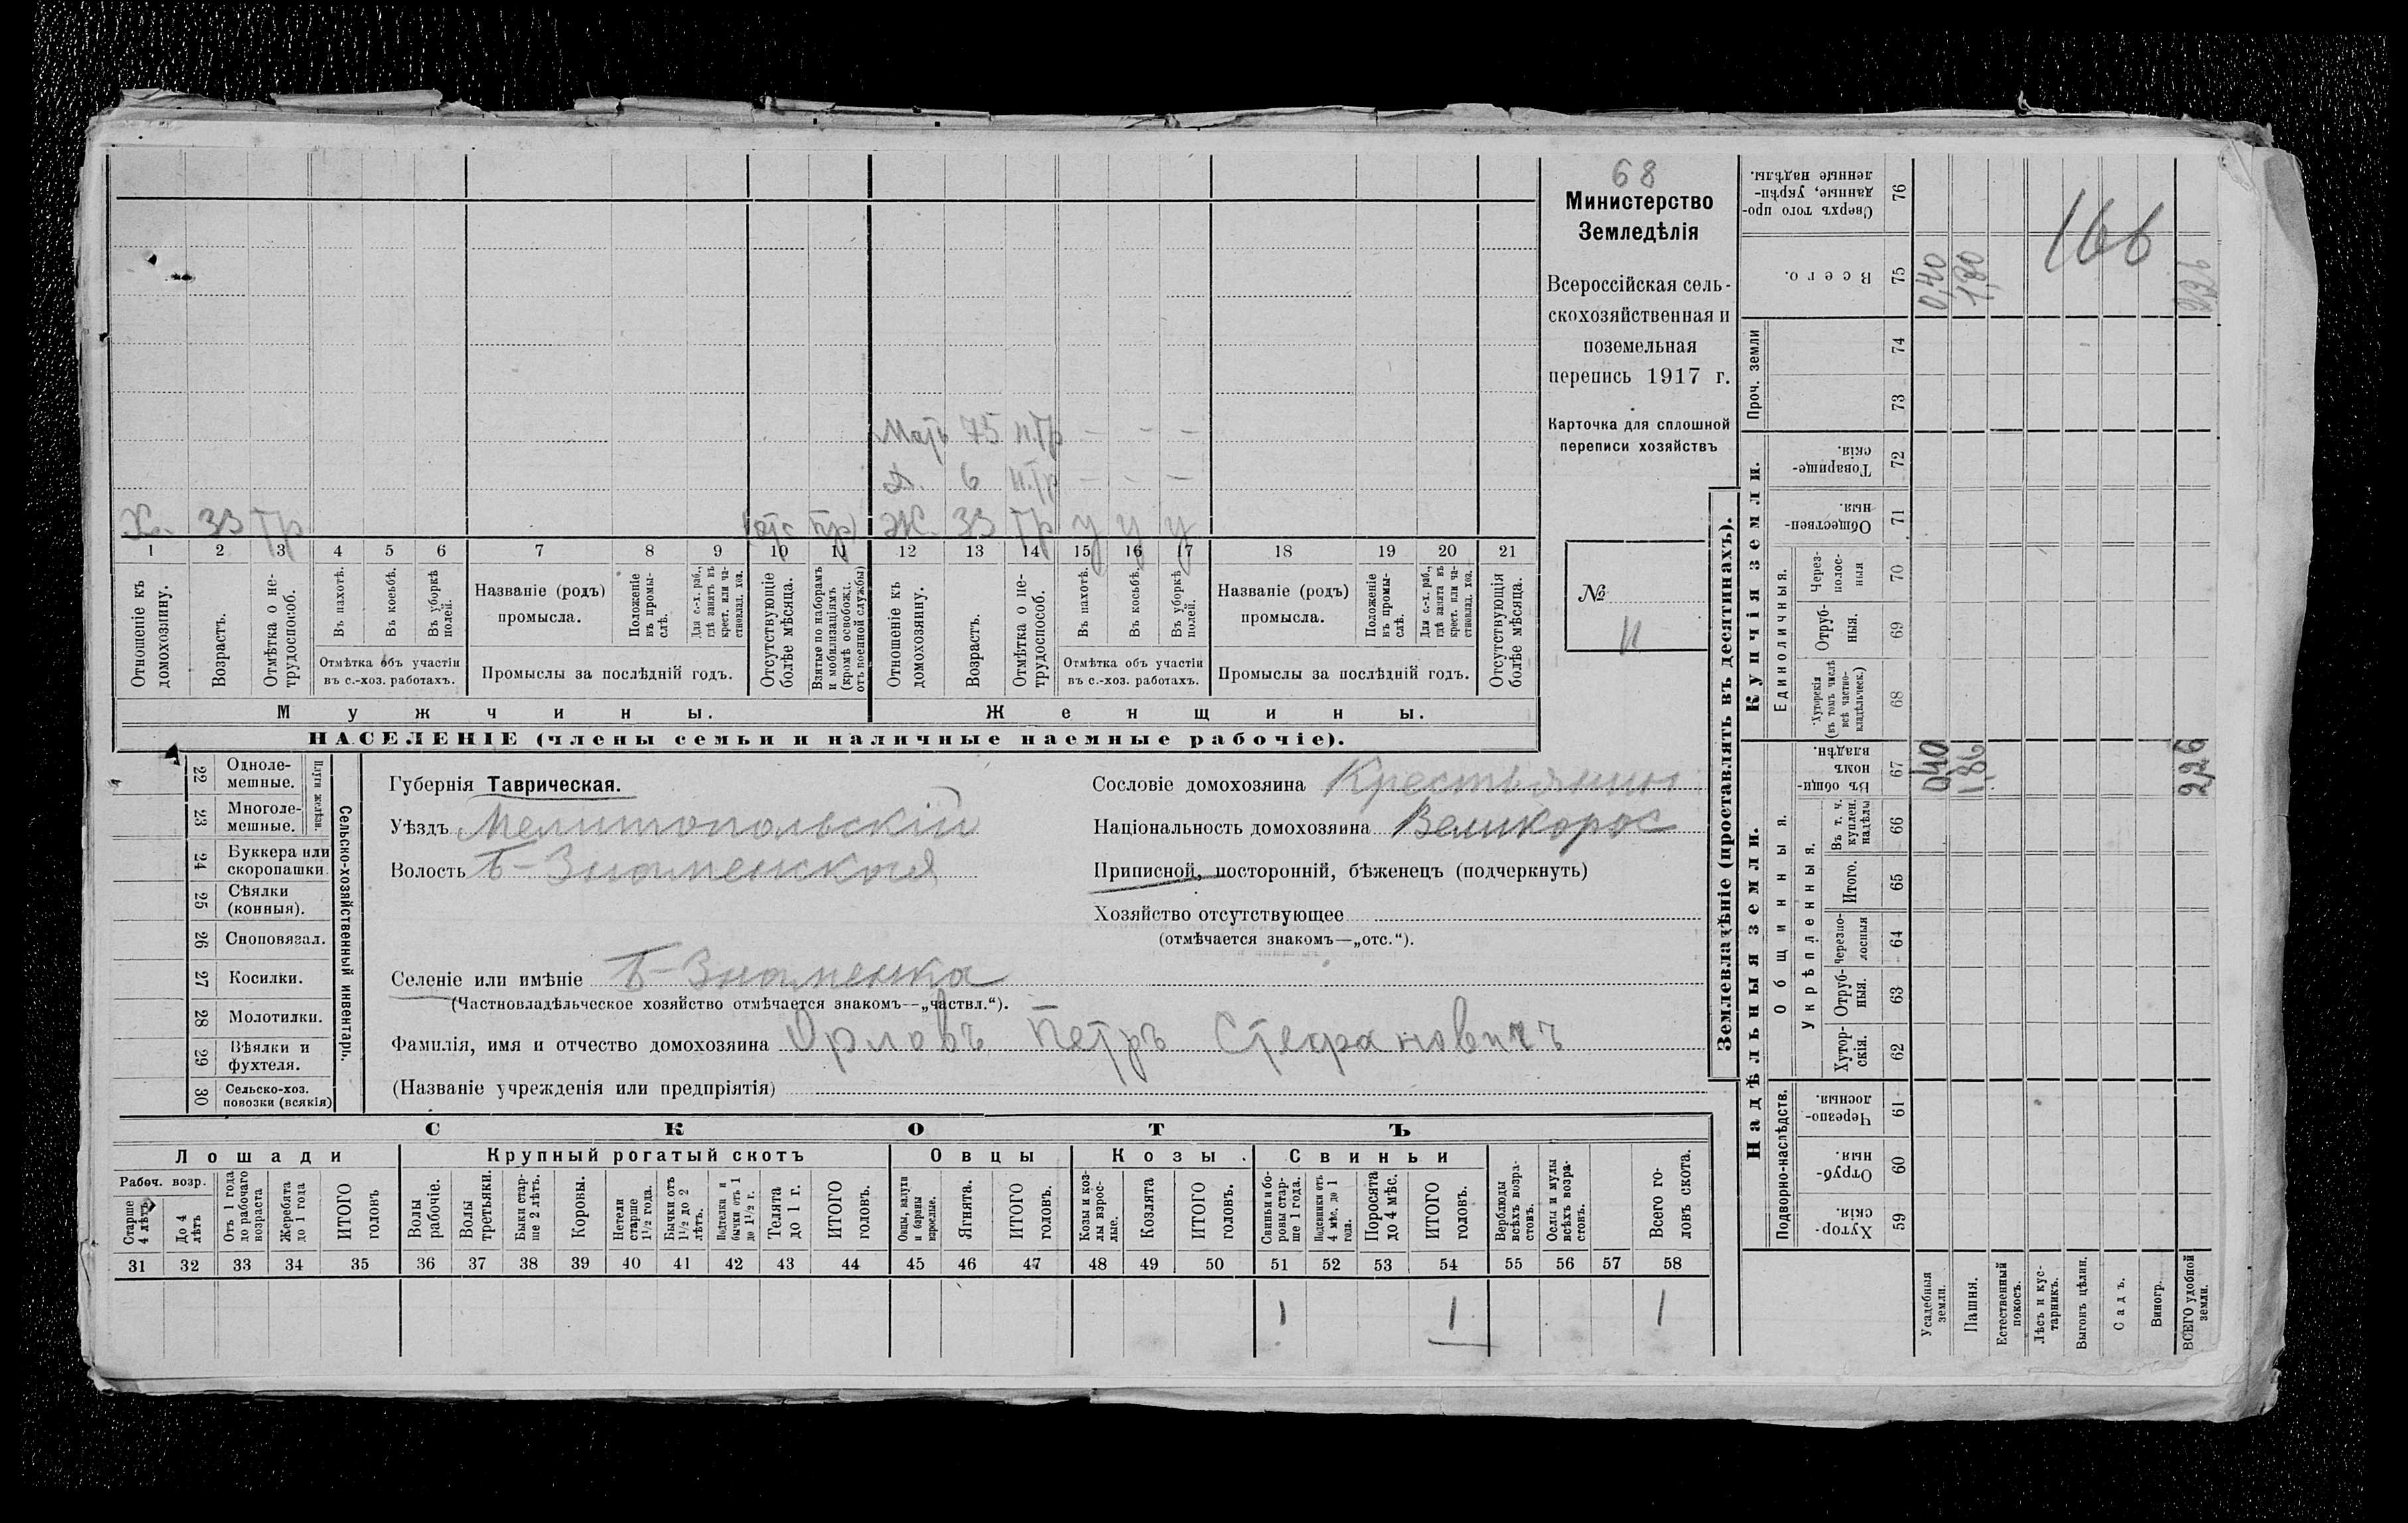 68
Министерство
Земледѣлія
Всероссійская сель-
скохозяйственная и
поземельная
перепись 1917 г.
Карточка для сплошной
переписи хозяйствъ
№
11
Мать 75 н.тр - - -
Д. 6 н.тр - - -
Х. 33 тр Ж. 33 тр у у у
1 2 3 4 5 6 7 8 9 10 11 12 13 14 15 16 17 18 19 20 21
Отношеніе къ домохозяину.
Возрастъ.
Отмѣтка о нетрудоспособ.
Въ пахотѣ.
Въ косьбѣ.
Въ уборкѣ полей.
Отмѣтка объ участіи
въ с.-хоз. работахъ.
Названіе (родъ)
промысла.
Положеніе въ промыслѣ.
Для с.-х. раб., гдѣ занятъ въ крест. или частновлад. хоз.
Промыслы за послѣдній годъ.
Отсутствующіе болѣе мѣсяца.
Взятые по наборамъ и мобилизаціямъ (кромѣ освобожд. отъ военной службы)
Отношеніе къ домохозяину.
Возрастъ.
Отмѣтка о нетрудоспособ.
Въ пахотѣ.
Въ косьбѣ.
Въ уборкѣ полей.
Отмѣтка объ участіи
въ с.-хоз. работахъ.
Названіе (родъ)
промысла.
Положеніе въ промыслѣ.
Для с.-х. раб., гдѣ занята въ крест. или частновлад. хоз.
Промыслы за послѣдній годъ.
Отсутствующія болѣе мѣсяца.
Мужчины. Женщины.
НАСЕЛЕНІЕ (члены семьи и наличные наемные рабочіе).
22 Однолемешные.
23 Многолемешные.
Плуги желѣзн.
24 Буккера или скоропашки
25 Сѣялки (конныя).
26 Сноповязал.
27 Косилки.
28 Молотилки.
29 Вѣялки и фухтеля.
30 Сельско-хоз. повозки (всякія)
Сельско-хозяйственный инвентарь.
Губернія Таврическая.
Уѣздъ Мелитопольскій
Волость Б-Знаменская
Сословіе домохозяина Крестьянин
Національность домохозяина Великорос
Приписной, посторонній, бѣженецъ (подчеркнуть)
Хозяйство отсутствующее
(отмѣчается знакомъ—„отс.“).
Селеніе или имѣніе Б-Знаменка
(Частновладѣльческое хозяйство отмѣчается знакомъ—„частвл.“).
Фамилія, имя и отчество домохозяина Орловъ Петръ Стефановичъ
(Названіе учрежденія или предпріятія)
СКОТЪ
Лошади Крупный рогатый скотъ Овцы Козы. Свиньи
Рабоч. возр.
Старше 4 лѣтъ
До 4 лѣтъ
Отъ 1 года до рабочаго возраста
Жеребята до 1 года
ИТОГО головъ
Волы рабочіе.
Волы третьяки.
Быки старше 2 лѣтъ.
Коровы.
Нетели старше 1½ года.
Бычки отъ 1½ до 2 лѣтъ.
Подтелки и бычки отъ 1 до 1½ г.
Телята до 1 г.
ИТОГО головъ.
Овцы, валухи и бараны взрослые.
Ягнята.
ИТОГО головъ.
Козы и козлы взрослые.
Козлята
ИТОГО головъ.
Свиньи и боровы старше 1 года.
Подсвинки отъ 4 мѣс. до 1 года.
Поросята до 4 мѣс.
ИТОГО головъ.
Верблюды всѣхъ возрастовъ.
Ослы и мулы всѣхъ возрастовъ.
Всего головъ скота.
31 32 33 34 35 36 37 38 39 40 41 42 43 44 45 46 47 48 49 50 51 52 53 54 55 56 57 58
1 1 1
Землевладѣніе (проставлять въ десятинахъ).
Надѣльныя земли. Купчія земли.
Подворно-наслѣдств.
Общинныя.
Укрѣпленныя.
Единоличныя.
Проч. земли
Сверхъ того проданные, укрѣпленные надѣлы. 76
Всего. 75 0,40 1,86
166
74
73
Товарищескія. 72
Общественныя. 71
Черезполосныя 70
Отрубныя. 69
Хуторскія (въ томъ числѣ всѣ частновладѣльческ.) 68
Въ общинномъ владѣн. 67 0,40 1,86 2,26
Въ т. ч. куплен. надѣлы 66
Итого. 65
Черезполосныя 64
Отрубныя. 63
Хуторскія. 62
Черезполосныя. 61
Отрубныя. 60
Хуторскія. 59
Усадебныя земли.
Пашня.
Естественный покосъ.
Лѣсъ и кустарникъ.
Выгонъ цѣлин.
Садъ.
Виногр.
ВСЕГО удобной земли.